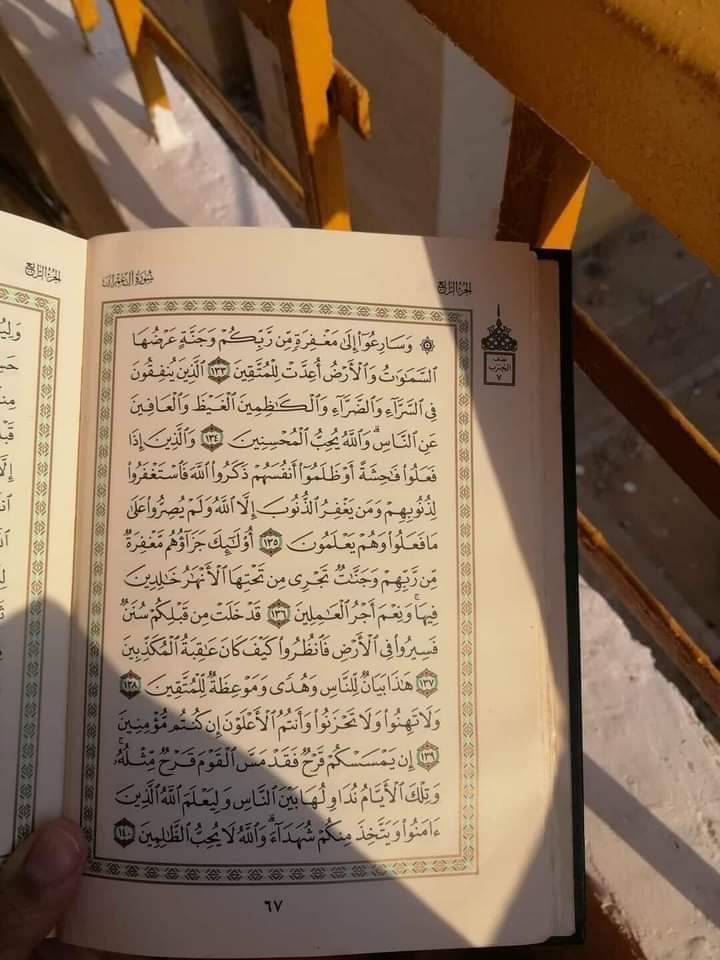 الجزء الرابع
سُورَةُ آلِ عِمْرَانَ
الجزء الرابع
۞ وَسَارِعُوٓا۟ إِلَىٰ مَغْفِرَةٍ مِّن رَّبِّكُمْ وَجَنَّةٍ عَرْضُهَا
ٱلسَّمَٰوَٰتُ وَٱلْأَرْضُ أُعِدَّتْ لِلْمُتَّقِينَ ١٣٣ ٱلَّذِينَ يُنفِقُونَ
فِى ٱلسَّرَّآءِ وَٱلضَّرَّآءِ وَٱلْكَٰظِمِينَ ٱلْغَيْظَ وَٱلْعَافِينَ
عَنِ ٱلنَّاسِ ۗ وَٱللَّهُ يُحِبُّ ٱلْمُحْسِنِينَ ١٣٤ وَٱلَّذِينَ إِذَا
فَعَلُوا۟ فَٰحِشَةً أَوْ ظَلَمُوٓا۟ أَنفُسَهُمْ ذَكَرُوا۟ ٱللَّهَ فَٱسْتَغْفَرُوا۟
لِذُنُوبِهِمْ وَمَن يَغْفِرُ ٱلذُّنُوبَ إِلَّا ٱللَّهُ وَلَمْ يُصِرُّوا۟ عَلَىٰ
مَا فَعَلُوا۟ وَهُمْ يَعْلَمُونَ ١٣٥ أُو۟لَٰٓئِكَ جَزَآؤُهُم مَّغْفِرَةٌ
مِّن رَّبِّهِمْ وَجَنَّٰتٌ تَجْرِى مِن تَحْتِهَا ٱلْأَنْهَٰرُ خَٰلِدِينَ
فِيهَا ۚ وَنِعْمَ أَجْرُ ٱلْعَٰمِلِينَ ١٣٦ قَدْ خَلَتْ مِن قَبْلِكُمْ سُنَنٌ
فَسِيرُوا۟ فِى ٱلْأَرْضِ فَٱنظُرُوا۟ كَيْفَ كَانَ عَٰقِبَةُ ٱلْمُكَذِّبِينَ
١٣٧ هَٰذَا بَيَانٌ لِّلنَّاسِ وَهُدًى وَمَوْعِظَةٌ لِّلْمُتَّقِينَ ١٣٨
وَلَا تَهِنُوا۟ وَلَا تَحْزَنُوا۟ وَأَنتُمُ ٱلْأَعْلَوْنَ إِن كُنتُم مُّؤْمِنِينَ
١٣٩ إِن يَمْسَسْكُمْ قَرْحٌ فَقَدْ مَسَّ ٱلْقَوْمَ قَرْحٌ مِّثْلُهُۥ ۚ
وَتِلْكَ ٱلْأَيَّامُ نُدَاوِلُهَا بَيْنَ ٱلنَّاسِ وَلِيَعْلَمَ ٱللَّهُ ٱلَّذِينَ
ءَامَنُوا۟ وَيَتَّخِذَ مِنكُمْ شُهَدَآءَ ۗ وَٱللَّهُ لَا يُحِبُّ ٱلظَّٰلِمِينَ ١٤٠
نصف
الحزب
٧
٦٧